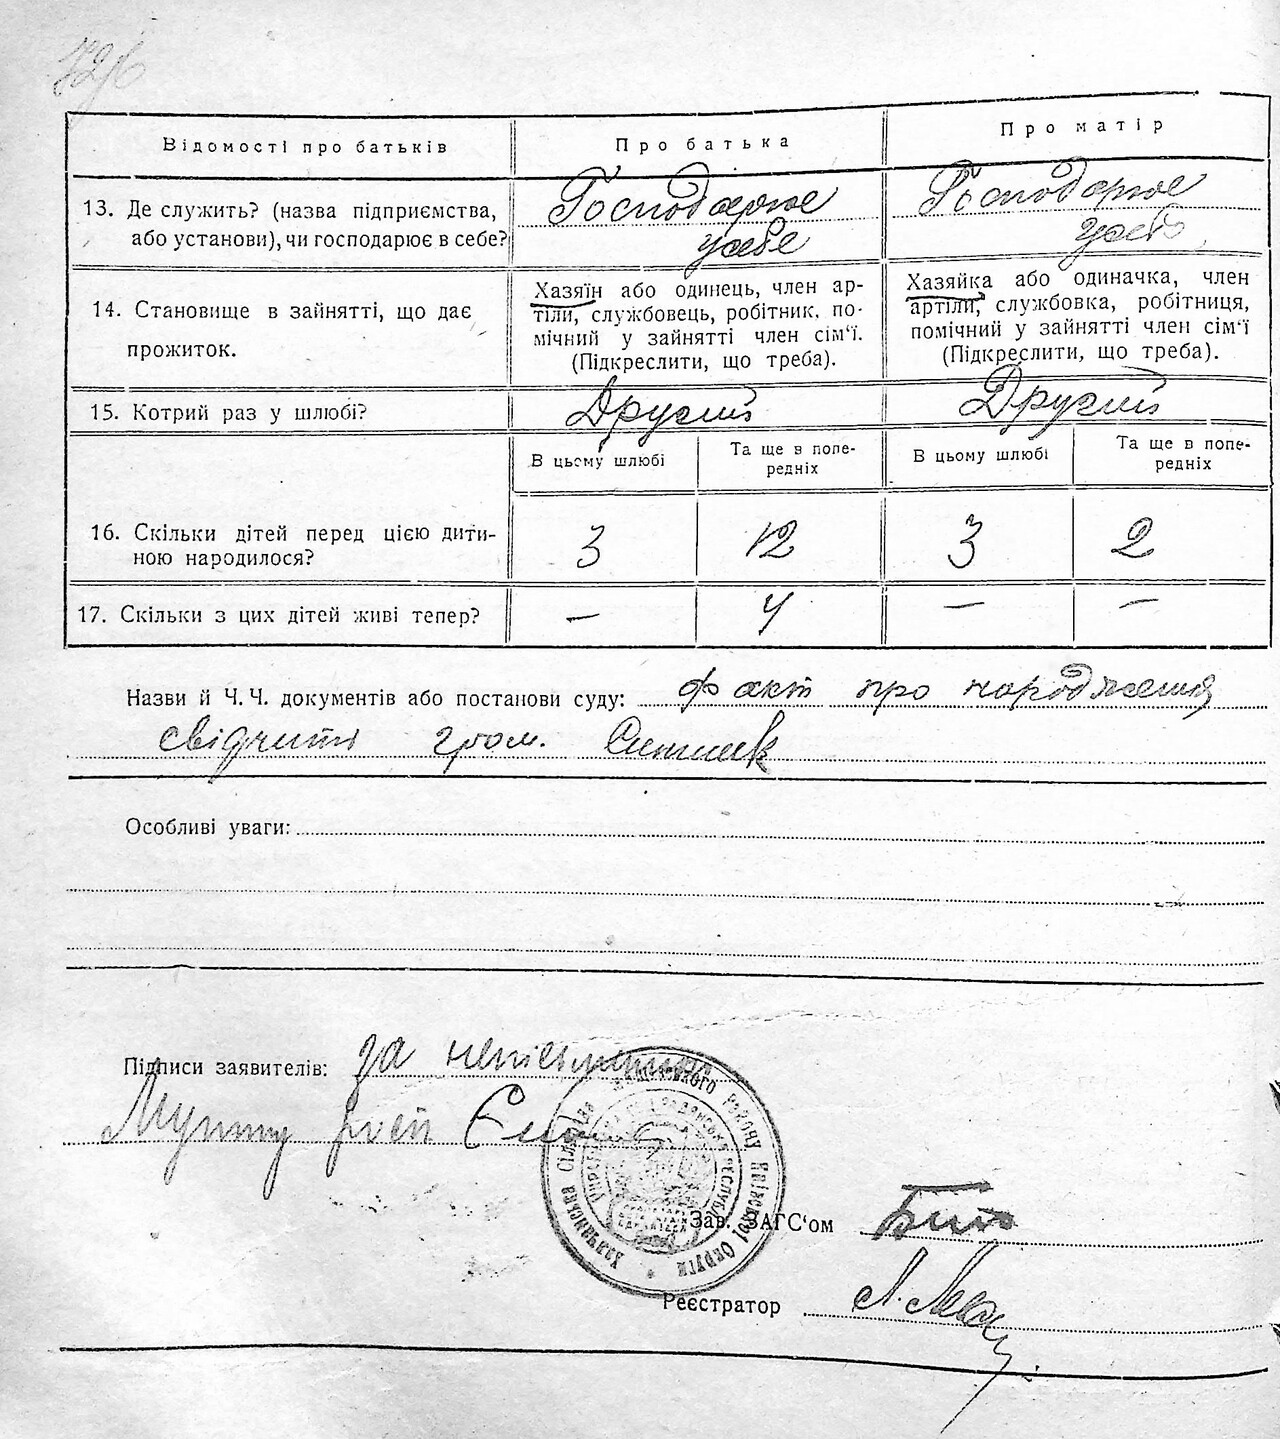 Відомості про батьків
Про батька
Про матір
13. Де служить? (назва підприємства,
або установи), чи господарює в себе?
Господарює
у себе
Господарює
у себе
14. Становище в зайнятті, що дає
прожиток.
Хазяїн або одинець, член ар-
тіли, службовець, робітник, по-
мічний у зайнятті член сім‘ї.
(Підкреслити, що треба).
Хазяйка або одиначка, член
артіли, службовка, робітниця,
помічний у зайнятті член сім‘ї
(Підкреслити, що треба).
15. Котрий раз у шлюбі?
Другий
Другий
В цьому шлюбі
Та ще в попе-
редніх
В цьому шлюбі
Та ще в попе-
редніх
16. Скільки дітей перед цією дити-
ною народилося?
3
12
3
2
17. Скільки з цих дітей живі тепер?
—
4
—
—
Назви й Ч. Ч. документів або постанови суду: факт про народження
свідчить гром.
Особливі уваги:
Підписи заявителів: за
Зав. ЗАГС‘ом
Реєстратор